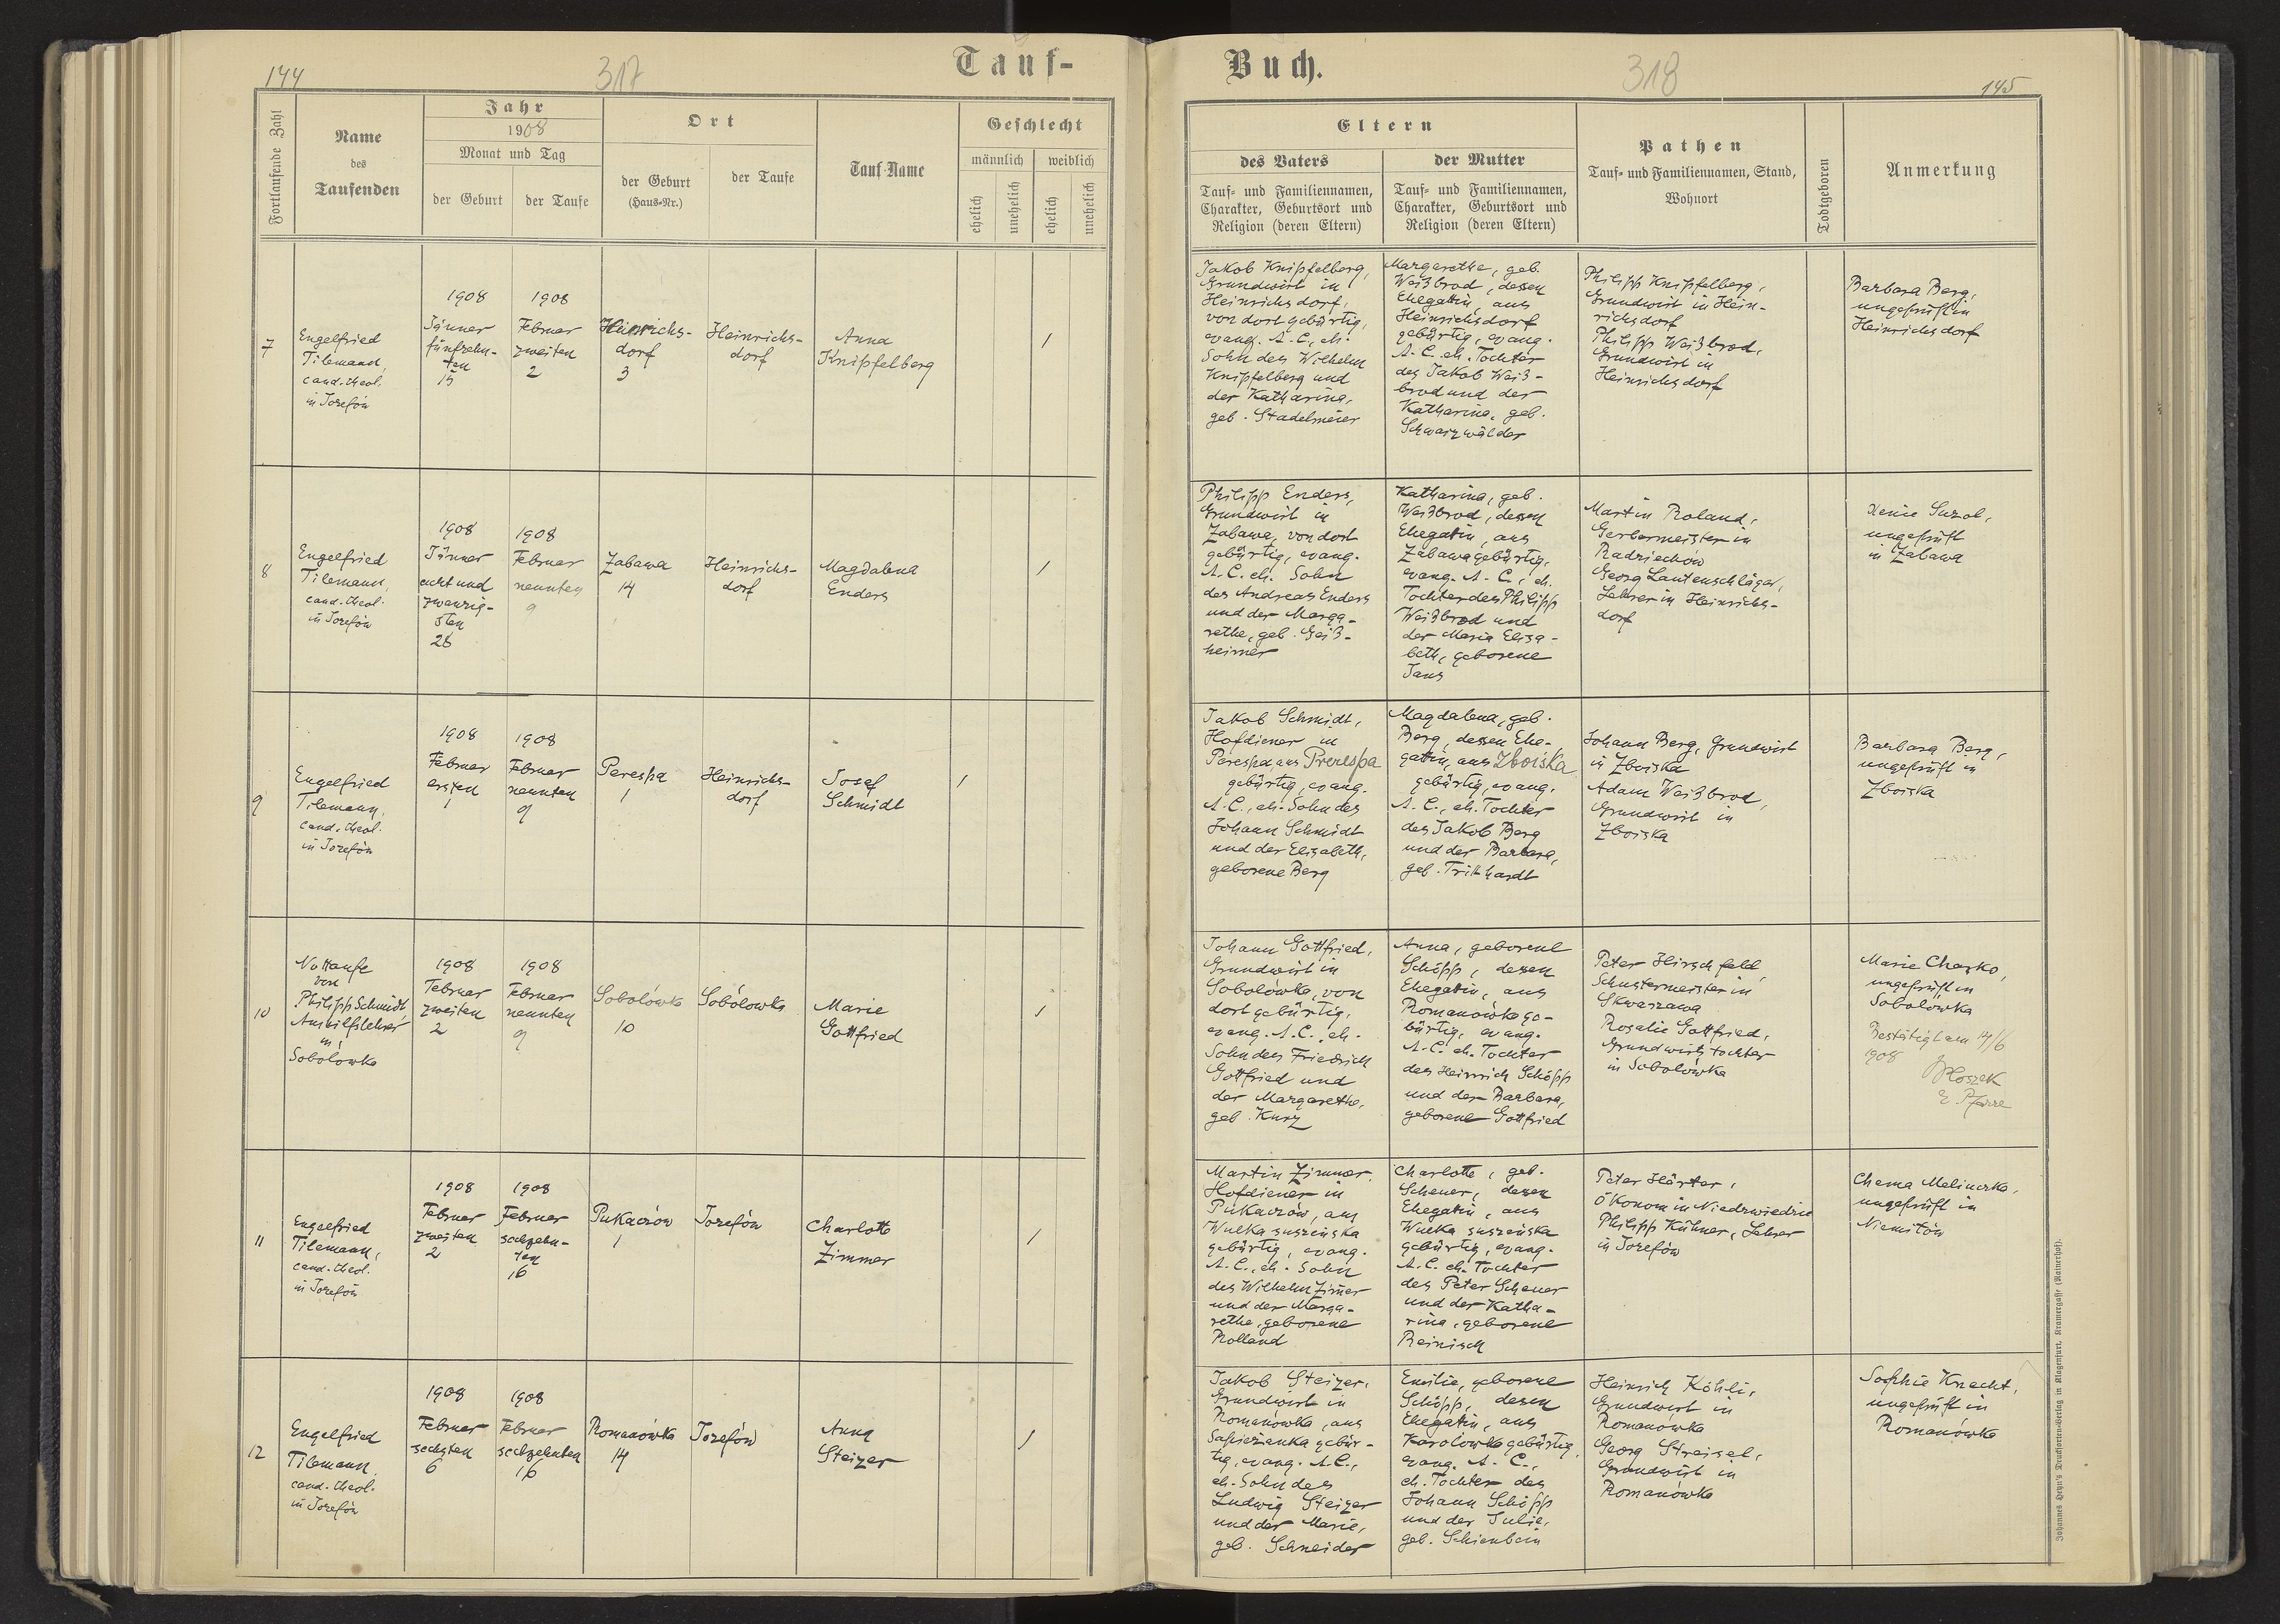 144
317
Tauf-
Fortlaufende Zahl
Name
des
Taufenden
Jahr
1908
Monat und Tag
der Geburt
der Taufe
Ort
der Geburt
(Haus-Nr.)
der Taufe
Tauf-Name
Geschlecht
männlich
weiblich
ehelich
unehelich
ehelich
unehelich
7
Engelfried
Tilemann,
cand. theol.
in Josefów
1908
Jänner
fünfzehn-
ten
15
1908
Februar
zweiten
2
Heinrichs-
dorf
3
Heinrichs-
dorf
Anna
Knipfelberg
1
8
Engelfried
Tilemann,
cand. theol.
in Josefów
1908
Jänner
acht und
zwanzig-
sten
28
1908
Februar
neunten
9
Zabawa
14
Heinrichs-
dorf
Magdalena
Enders
1
9
Engelfried
Tilemann,
cand. theol.
in Josefów
1908
Februar
ersten
1
1908
Februar
neunten
9
Perespa
1
Heinrichs-
dorf
Josef
Schmidt
1
10
Nottaufe
von
Philipp Schmidt,
Aushilfslehrer
in
Sobolówka
1908
Februar
zweiten
2
1908
Februar
neunten
9
Sobolówka
10
Sobólowka
Marie
Gottfried
1
11
Engelfried
Tilemann,
cand. theol.
in Josefów
1908
Februar
zweiten
2
1908
Februar
sechzehn-
ten
16
Pukaczów
1
Josefów
Charlotte
Zimmer
1
12
Engelfried
Tilemann,
cand. theol.
in Josefów
1908
Februar
sechsten
6
1908
Februar
sechzehnten
16
Romanówka
14
Josefów
Anna
Steizer
1
Buch.
318
145
Eltern
des Vaters
Tauf- und Familiennamen,
Charakter, Geburtsort und
Religion (deren Eltern)
der Mutter
Tauf- und Familiennamen,
Charakter, Geburtsort und
Religion (deren Eltern)
Pathen
Tauf- und Familiennamen, Stand,
Wohnort
Todtgeboren
Anmerkung
Jakob Knipfelberg,
Grundwirt in
Heinrichsdorf,
von dort gebürtig,
evang. A. C., eh.
Sohn des Wilhelm
Knipfelberg und
der Katharina,
geb. Stadelmeier
Margarethe, geb.
Weißbrod, dessen
Ehegattin, aus
Heinrichsdorf
gebürtig, evang.
A. C. eh. Tochter
des Jakob Weiß-
brod und der
Katharina, geb.
Schwarzwälder
Philipp Knipfelberg,
Grundwirt in Hein-
richsdorf
Philipp Weißbrod,
Grundwirt in
Heinrichsdorf
Barbara Berg,
ungeprüft in
Heinrichsdorf
Philipp Enders,
Grundwirt in
Zabawa, von dort
gebürtig, evang.
A. C. eh. Sohn
des Andreas Enders
und der Marga-
rethe, geb. Geiß-
heimer
Katharina, geb.
Weißbrod, dessen
Ehegattin, aus
Zabawa gebürtig,
evang. A. C., eh.
Tochter des Philipp
Weißbrod und
der Maria Elisa-
beth, geborene
Jans
Martin Roland,
Gerbermeister in
Radziechów
Georg Lautenschläger,
Lehrer in Heinrichs-
dorf
Xenie Suzol,
ungeprüft
in Zabawa
Jakob Schmidt,
Hofdiener in
Perespa aus Przerespa
gebürtig, evang.
A. C., eh. Sohn des
Johann Schmidt
und der Elisabeth,
geborene Berg
Magdalena, geb.
Berg, dessen Ehe-
gattin, aus Zboiska
gebürtig, evang.
A. C., eh. Tochter
des Jakob Berg
und der Barbara,
geb. Trithardt
Johann Berg, Grundwirt
in Zboiska
Adam Weißbrod,
Grundwirt in
Zboiska
Barbara Berg,
ungeprüft in
Zboiska
Johann Gottfried,
Grundwirt in
Sobolówka, von
dort gebürtig,
evang. A. C. eh.
Sohn des Friedrich
Gottfried und
der Margarethe,
geb. Kurz
Anna, geborene
Schöpp, dessen
Ehegattin, aus
Romanówka ge-
bürtig, evang.
A. C. eh. Tochter
des Heinrich Schöpp
und der Barbara,
geborene Gottfried
Peter Hirschfeld,
Schustermeister in
Skwarzawa
Rosalie Gottfried,
Grundwirtstochter
in Sobolówka
Marie Chasko,
ungeprüft in
Sobolówka
Bestätigt am 14/6
1908
Pfarre
Martin Zimmer,
Hofdiener in
Pukaczów, aus
Wulka suszeńska
gebürtig, evang.
A. C., eh. Sohn
des Wilhelm Zimer
und der Marga-
rethe, geborene
Rolland
Charlotte, geb.
Scheuer, dessen
Ehegattin, aus
Wulka suszeńska
gebürtig, evang.
A. C. eh. Tochter
des Peter Scheuer
und der Katha-
rina, geborene
Reinisch
Peter Härter,
Ökonom in Niedzwiedzie
Philipp Kühner, Lehrer
in Josefów
Chema Melinczka,
ungeprüft in
Niemilów
Jakob Steizer,
Grundwirt in
Romanówka, aus
Sapieżanka gebür-
tig, evang. A. C.,
eh. Sohn des
Ludwig Steizer
und der Marie,
geb. Schneider
Emilie, geborene
Schöpp, dessen
Ehegattin, aus
Karolówka gebürtig,
evang. A. C.,
eh. Tochter des
Johann Schöpp
und der Julie,
geb. Schienbein
Heinrich Köhli,
Grundwirt in
Romanówka
Georg Streisel,
Grundwirt in
Romanówka
Sophie Knecht,
ungeprüft in
Romanówka
Johannes Heyn's Drucksorten-Verlag in Klagenfurt, Kramergasse (Rainerhof).